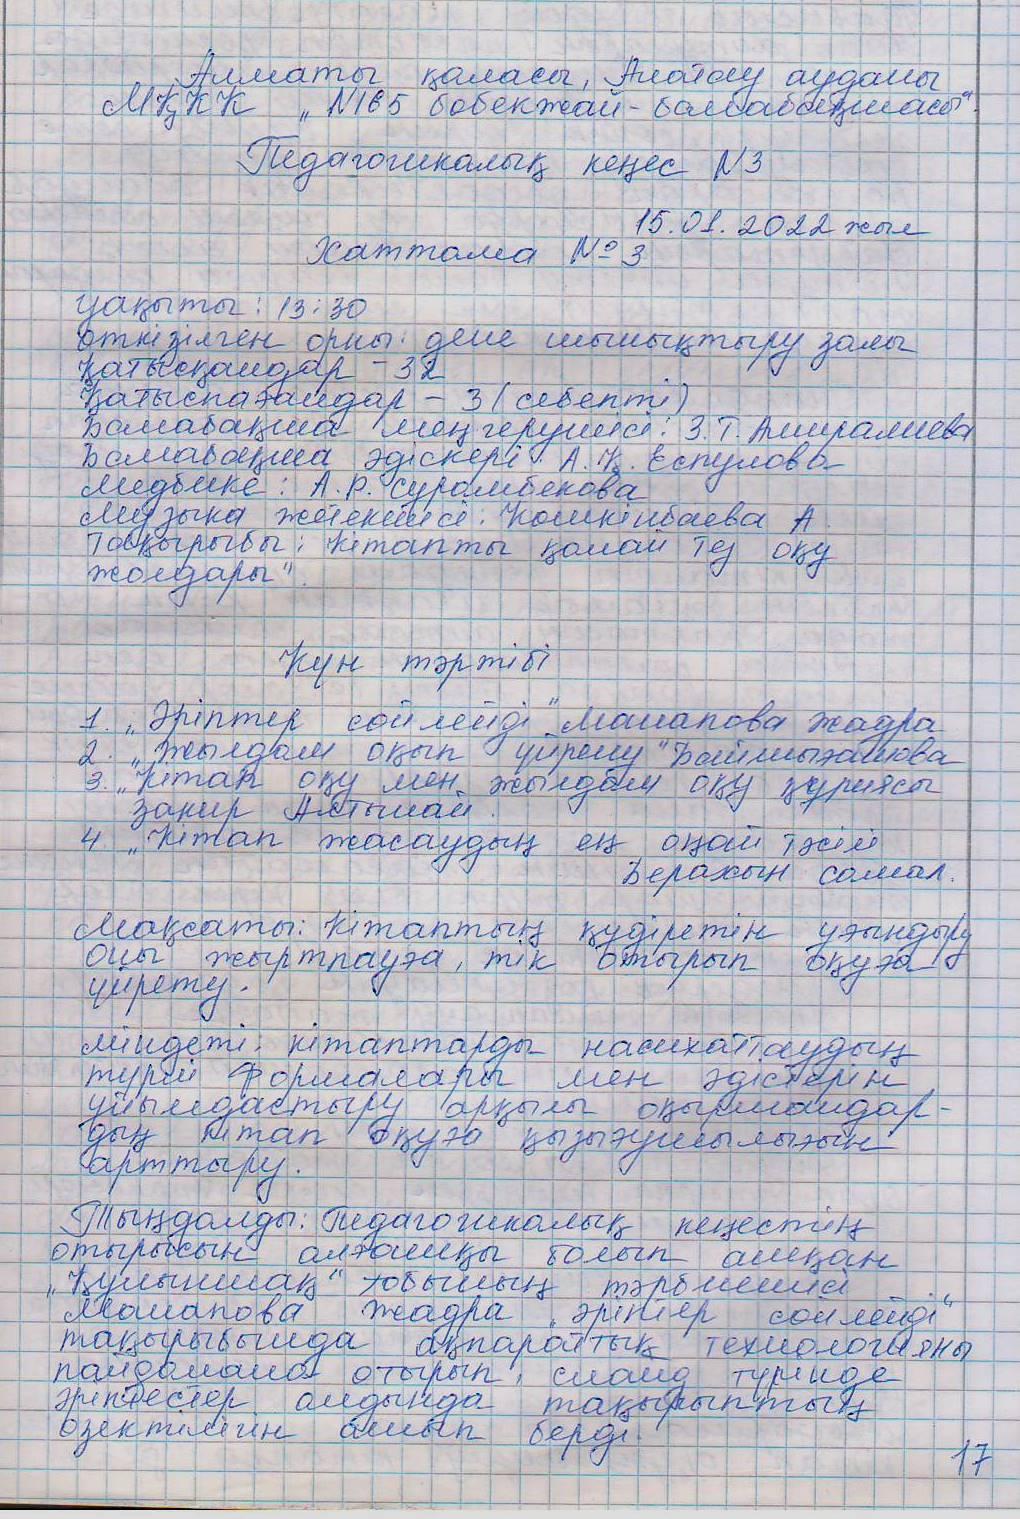 Алматы қаласы, Алатау ауданы
МҚКК „N165 бөбекжай-балабақшасы"
Педагогикалық кеңес N3
15.01.2022 жыл
Хаттама №3
Уақыты: 13:30
Өткізілген орны: дене шынықтыру залы
Қатысқандар - 32
Қатыспағандар - 3 (себепті)
Балабақша меңгерушісі: З.Т. Амиралиева
Балабақша әдіскері: А.Қ. Еспулова
Медбике: А.Р. Сурамбекова
Музыка жетекшісі: Кошкінбаева А.
Тақырыбы: Кітапты қалай тез оқу
жолдары".
Күн тәртібі
1. „Әріптер сөйлейді" Манапова Жадра
2. „Жылдам оқып үйрену" Байшығанова
3. „Кітап оқу мен жылдам оқу құпиясы
Закир Алтынай.
4. „Кітап жасаудың ең оңай тәсілі
Берахын Самал.
Мақсаты: Кітаптың құдіретін ұғындыру
оны жыртпауға, тік отырып оқуға
үйрету.
Міндеті: кітаптарды насихаттаудың
түрлі формалары мен әдістерін
ұйымдастыру арқылы оқырмандар-
дың кітап оқуға қызығушылығын
арттыру.
Тыңдалды: Педагогикалық кеңестің
отырысын алғашқы болып ашқан
„Құлыншақ" тобының тәрбиешісі
Манапова Жадра „Әріптер сөйлейді"
тақырыбында ақпараттық технологияны
пайдалана отырып, слайд түрінде
әріптестер алдында тақырыптың
өзектілігін ашып берді.
17